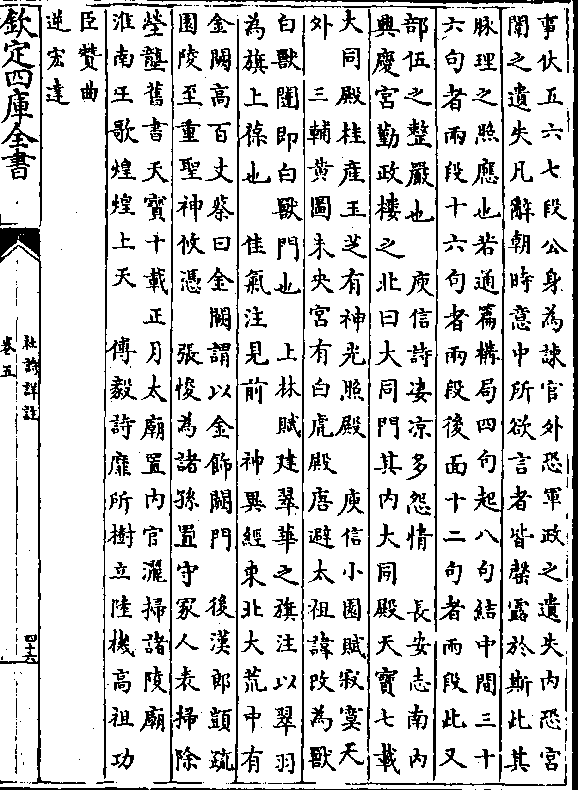 事伏五六七段公身為諫官外恐軍政之遺失内恐宮
闈之遺失凡辭朝時意中所欲言者皆罄露於斯此其
脉理之照應也若通篇搆局四句起八句結中間三十
六句者兩段十六句者兩段後面十二句者兩段此又
部伍之整嚴也　庾信詩凄凉多怨情　長安志南内
興慶宮勤政樓之北曰大同門其内大同殿天寳七載
大同殿柱産玉芝有神光照殿　庾信小園賦寂寞天
外　三輔黄圖未央宮有白虎殿唐避太祖諱改為獸
白獸闥即白獸門也　上林賦建翠華之旗注以翠羽
為旗上葆也　佳氣注見前　神異經東北大荒中有
金闕高百丈蔡曰金闕謂以金飾闕門　後漢郎顗疏
園陵至重聖神攸憑　張悛為諸孫置守冢人表掃除
塋壟舊書天寳十載正月太廟置内官灑掃諸陵廟
淮南王歌煌煌上天　傅毅詩靡所樹立陸機高祖功
臣贊曲
逆宏達
欽定四庫全書
杜詩詳註
卷五
四十六